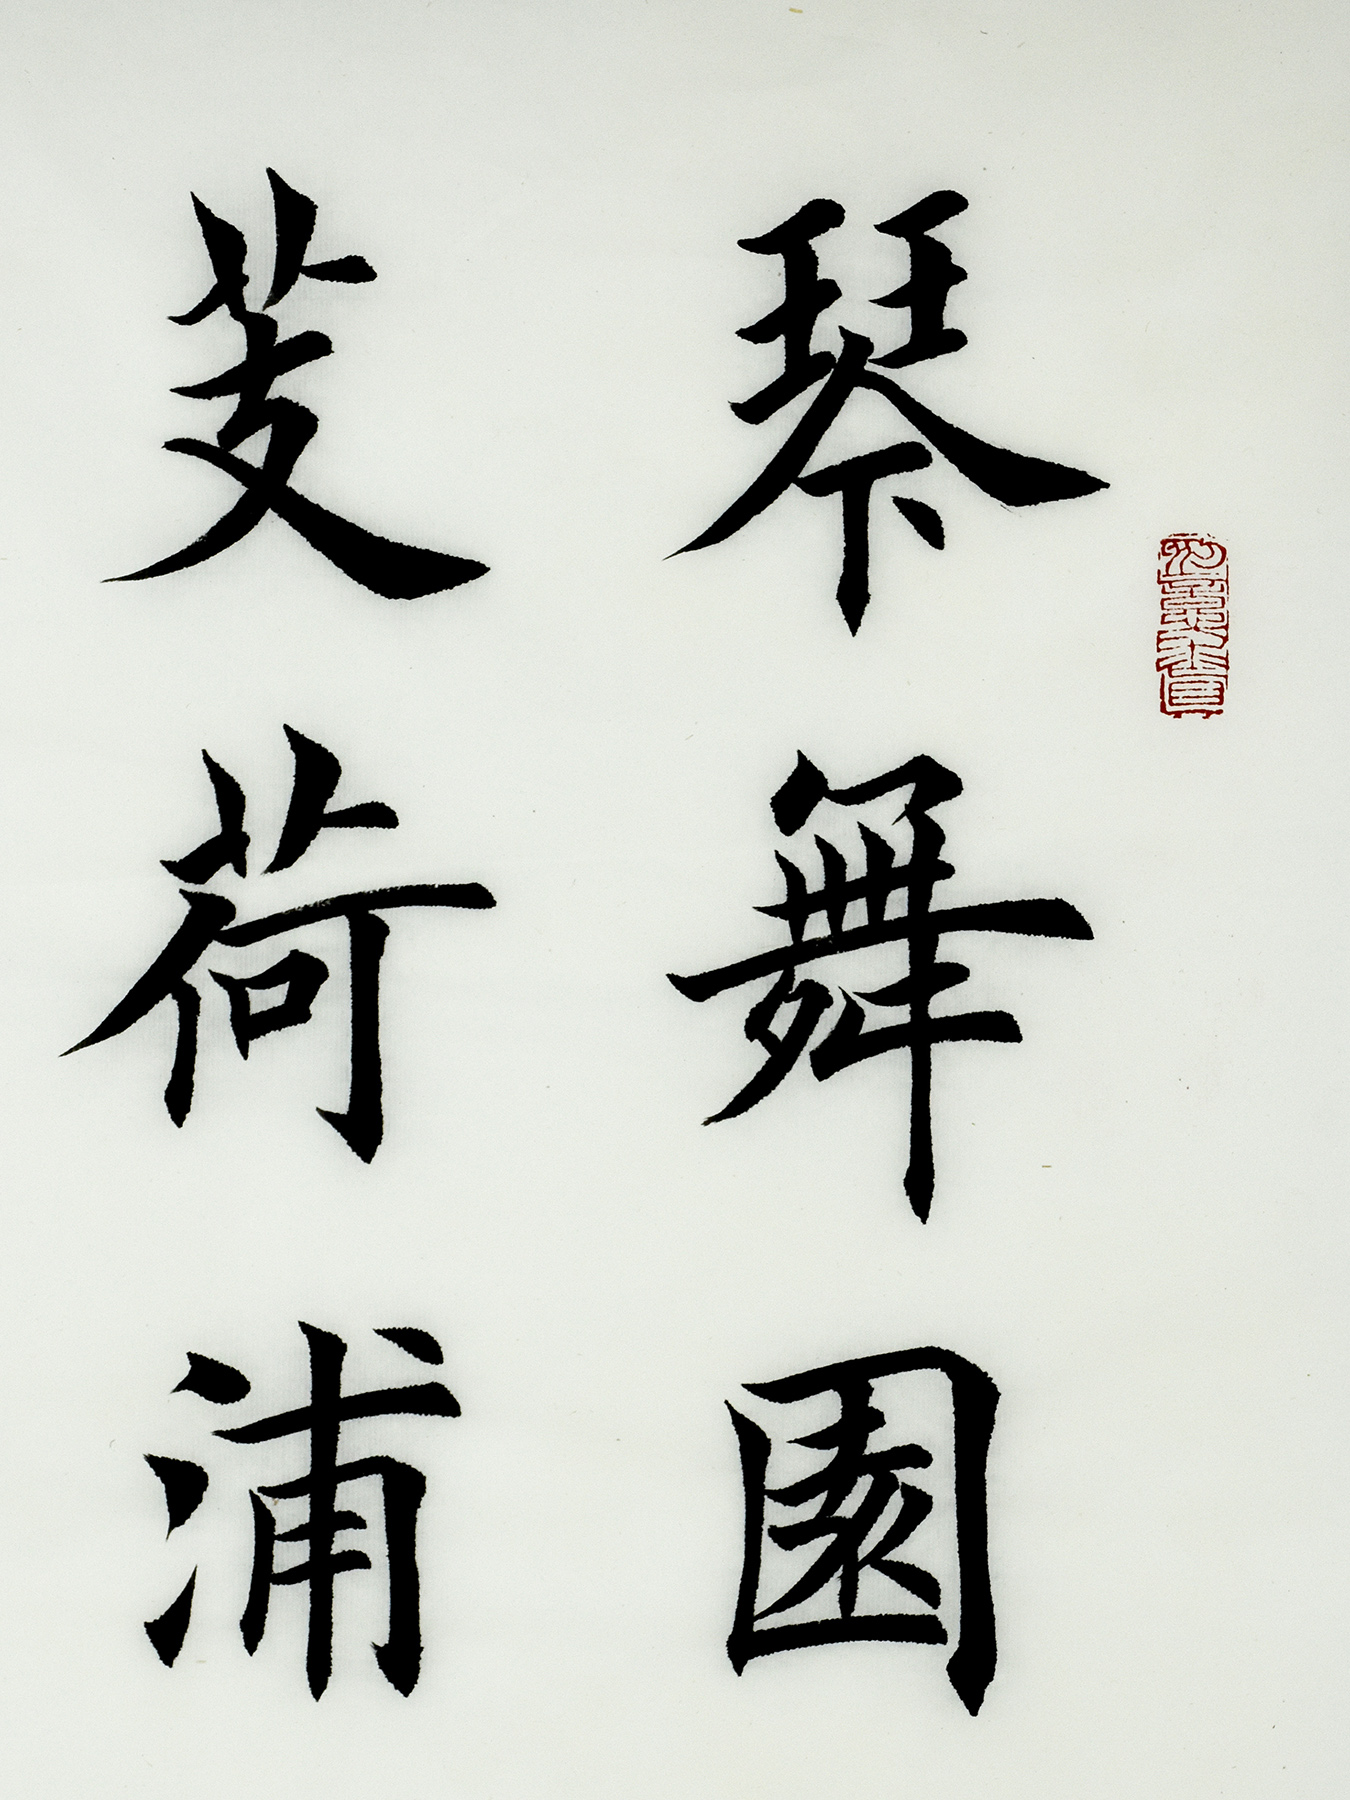 琴舞園
芰荷浦